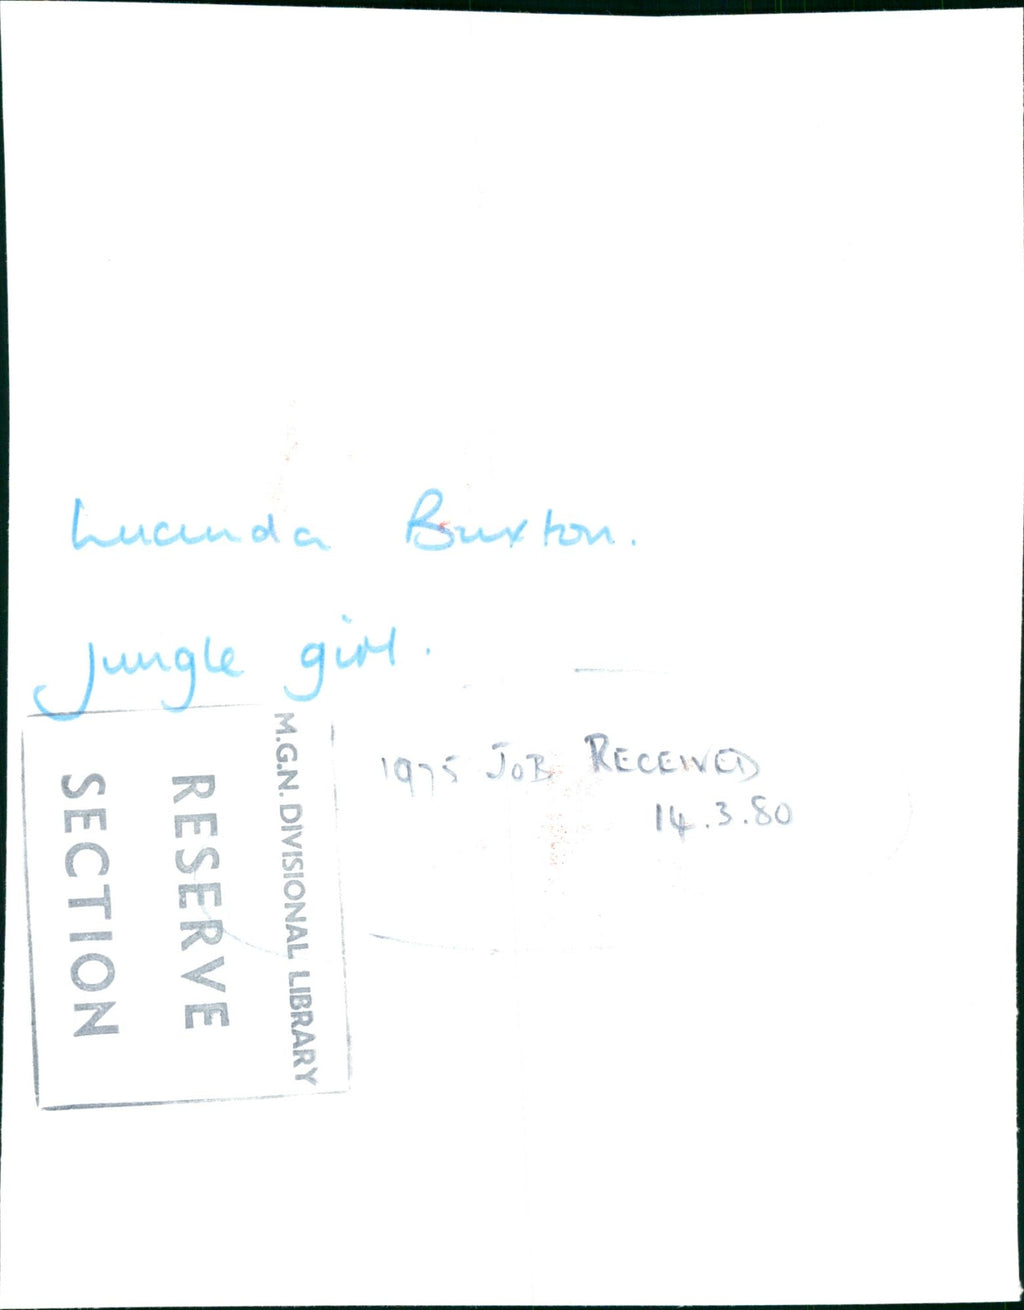 Lucinda Buxton.
Jungle girl.
1975 JOB RECEIVED
14.3.80
M.G.N. DIVISIONAL LIBRARY
RESERVE
SECTION